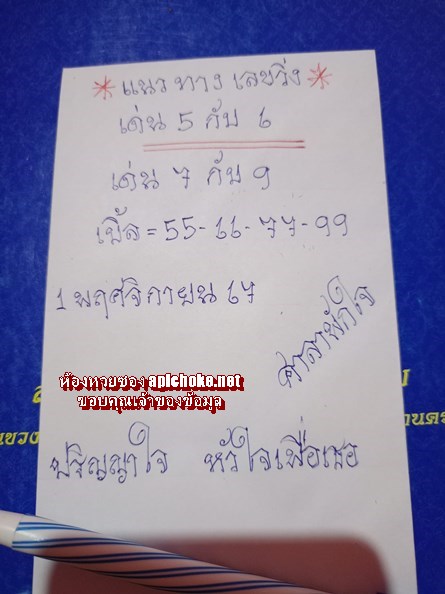 * แนวทาง เลขวิ่ง *
เด่น 5 กับ 6
เด่น 7 กับ 9
เบิ้ล = 55-66-77-99
1 พฤศจิกายน 67
ศาลาพักใจ
ห้องหวยซอง apichoke.net
ขอบคุณเจ้าของข้อมูล
ปริญญาใจ หัวใจเพื่อเธอ